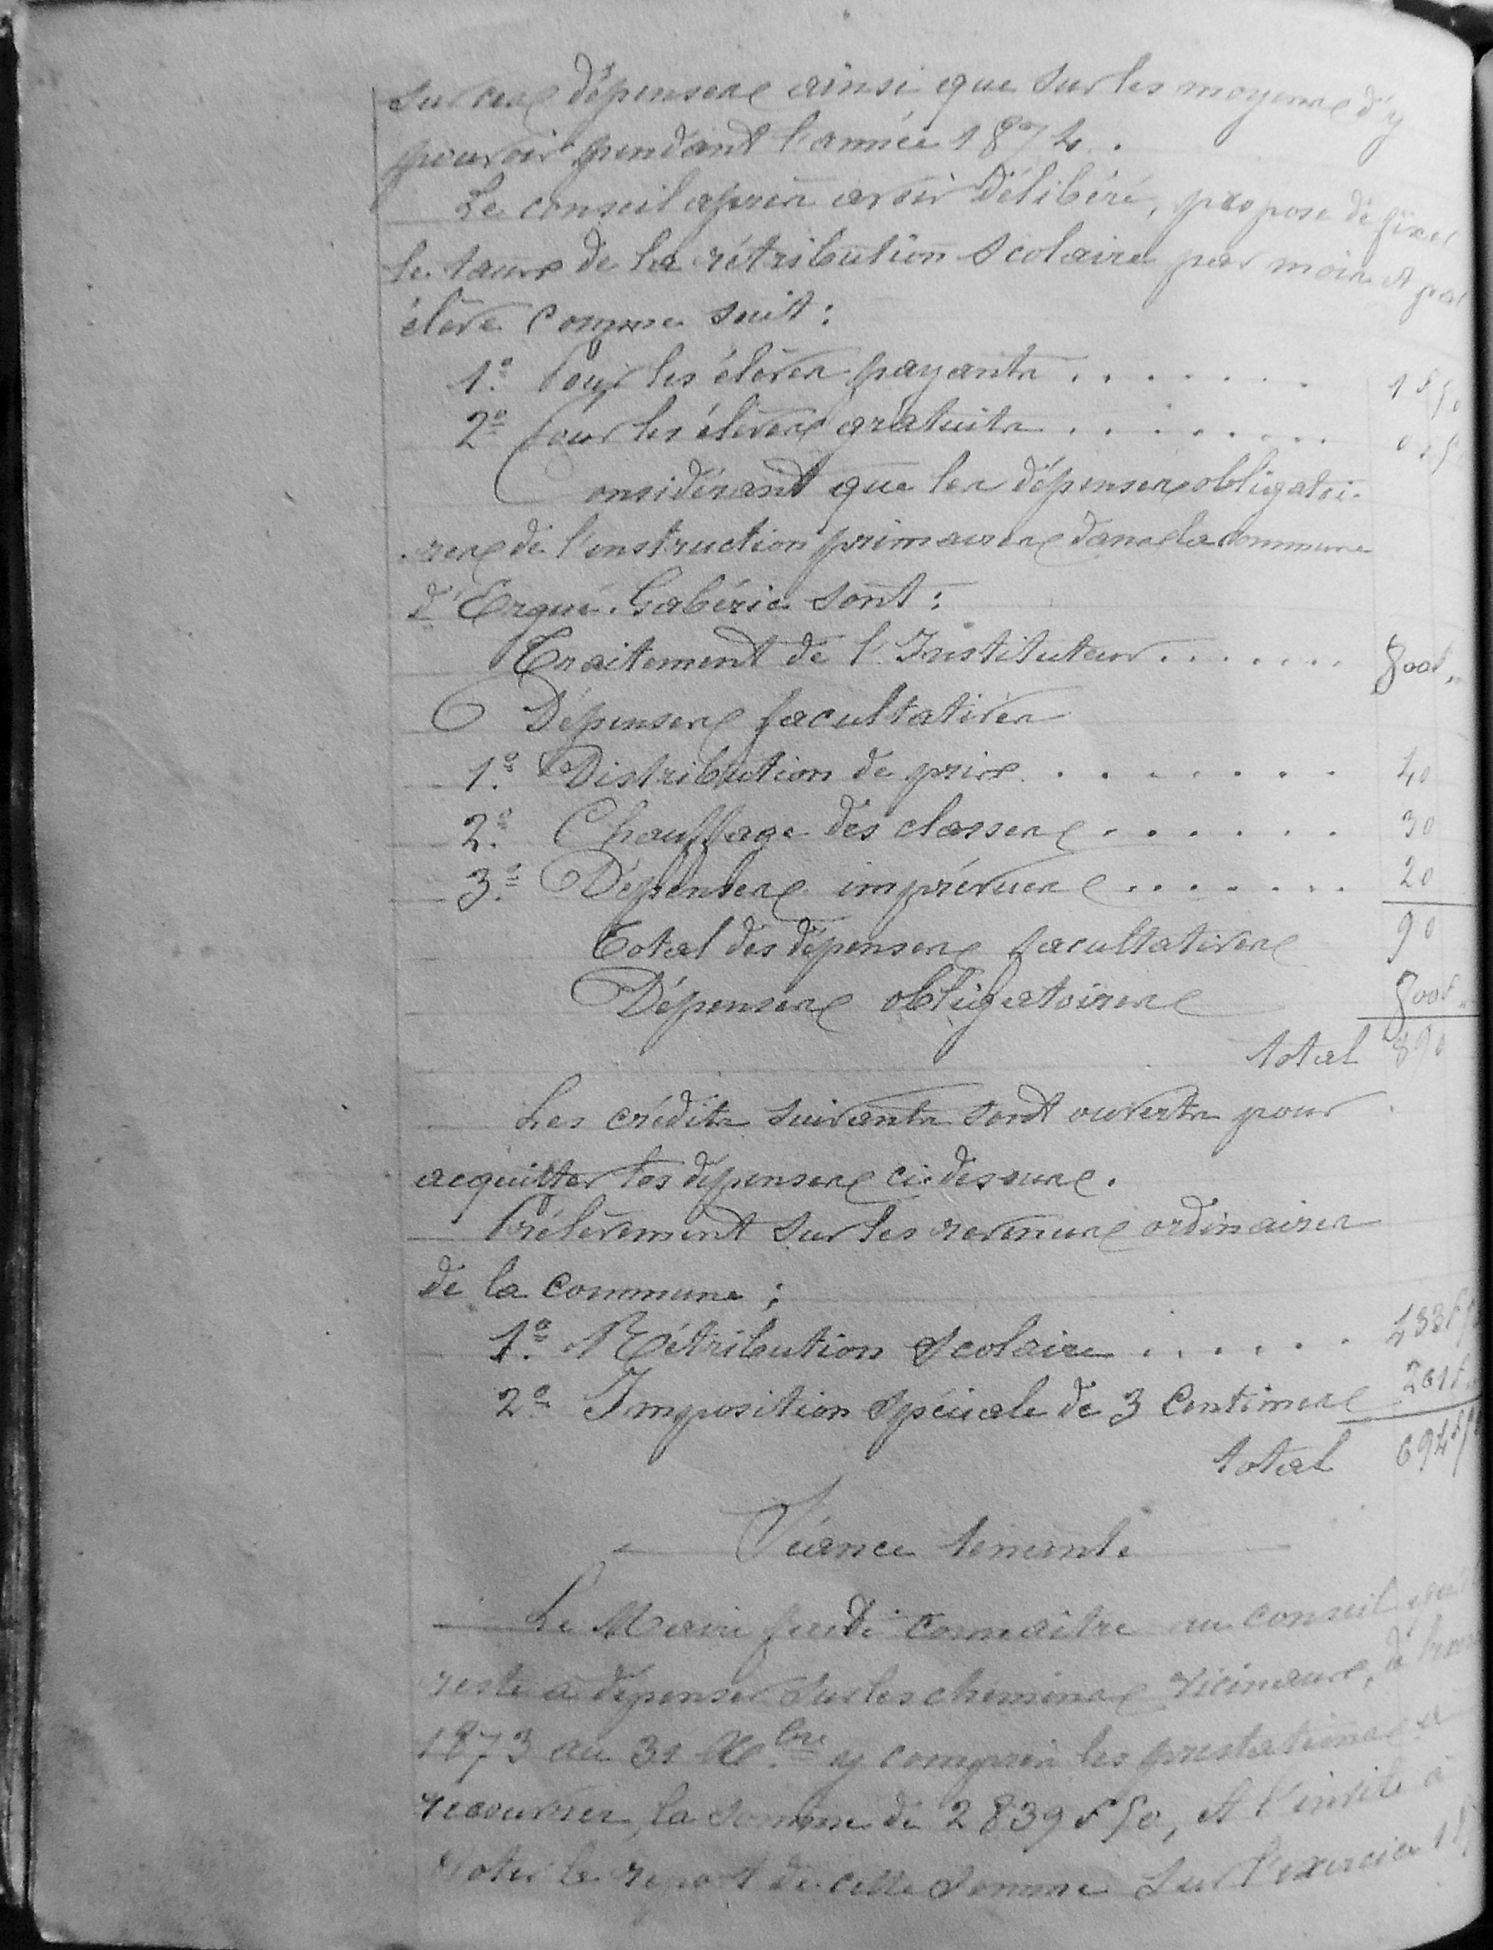 sur ces dépenses ainsi que sur les moyens d'y
pourvoir pendant l'année 1874.
Le conseil après avoir délibéré, propose de fixer
le taux de la rétribution scolaire par mois et par
élève comme suit :
1.º Pour les élèves payants . . . . . . . 1 f 50
2º Pour les élèves gratuits . . . . . . . .
Considérant que les dépenses obligatoi-
-res de l'instruction primaires dans la commune
d'Ergué-Gabéric sont :
Traitement de l'Instituteur . . . . . . . 800 f "
Dépenses facultatives
1.º Distribution de prix . . . . . . . . 40
2.º Chauffage des classes . . . . . . 30
3.º Dépenses imprévues . . . . . . . 20
Total des dépenses facultatives 90
Dépenses obligatoires 800 f "
total 890
Les crédits suivants sont ouverts pour
acquitter les dépenses ci-dessus.
Prélèvement sur les revenus ordinaires
de la commune ;
1.º Rétribution scolaire . . . . . .
2º Imposition spéciale de 3 Centimes
total
Séance tenante
Le Maire fait connaître au conseil
reste à dépenser sur les chemins vicinaux, de
1873 au 31 Xbre y compris les prestations à
recouvrer, la somme de 2839 f 50, et l'invite à
voter le report de cette somme sur l'exercice